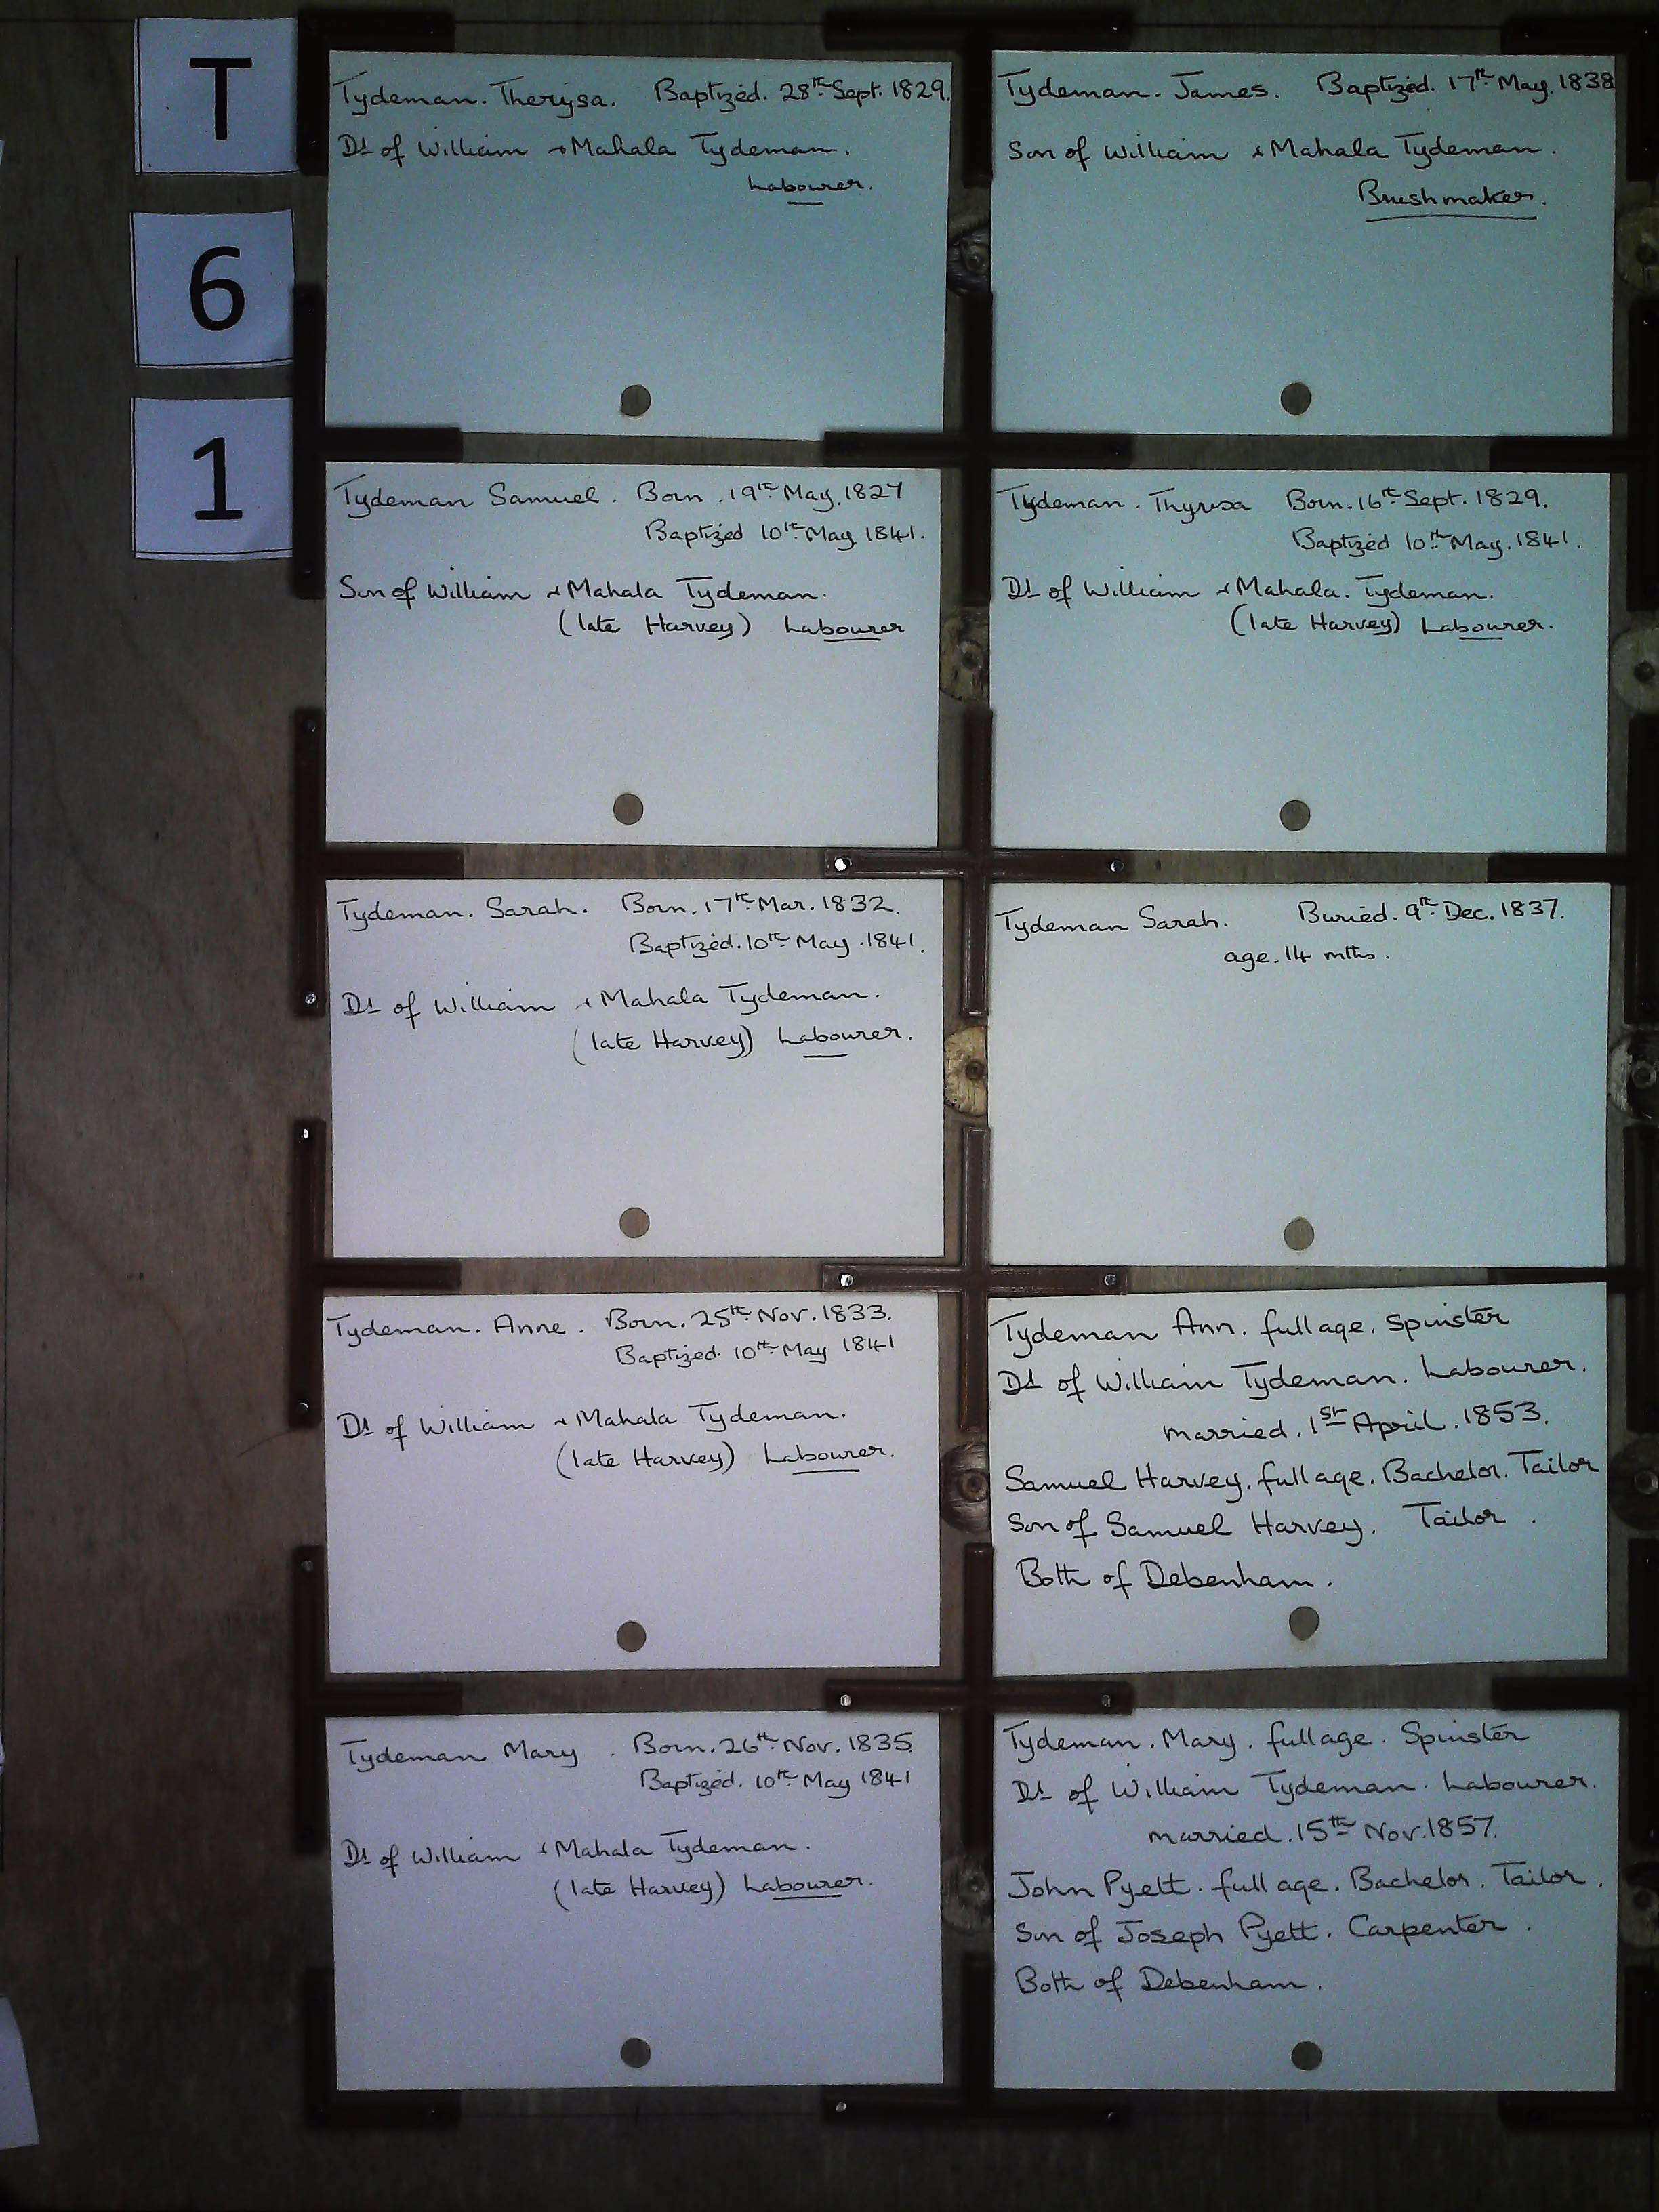 T
6
1
Tydeman. Therysa. Baptized. 28th Sept. 1829.
Dt of William & Mahala Tydeman.
Labourer.
Tydeman. James. Baptized. 17th May. 1838
Son of William & Mahala Tydeman.
Brushmaker.
Tydeman Samuel. Born. 19th May. 1827
Baptized 10th May 1841.
Son of William & Mahala Tydeman.
(late Harvey) Labourer
Tydeman. Thyrsa Born. 16th Sept. 1829.
Baptized 10th May. 1841.
Dt of William & Mahala. Tydeman.
(late Harvey) Labourer.
Tydeman. Sarah. Born. 17th Mar. 1832.
Baptized. 10th May. 1841.
Dt of William & Mahala Tydeman.
(late Harvey) Labourer.
Tydeman Sarah. Buried. 9th Dec. 1837.
age. 14 mths.
Tydeman. Anne. Born. 25th Nov. 1833.
Baptized. 10th May 1841
Dt of William & Mahala Tydeman.
(late Harvey) Labourer.
Tydeman Ann. full age. Spinster
Dt of William Tydeman. Labourer.
married. 1st April. 1853.
Samuel Harvey. full age. Bachelor. Tailor
Son of Samuel Harvey. Tailor.
Both of Debenham.
Tydeman Mary. Born. 26th Nov. 1835
Baptized. 10th May 1841
Dt of William & Mahala Tydeman.
(late Harvey) Labourer.
Tydeman. Mary. full age. Spinster
Dt of William Tydeman. Labourer.
married. 15th Nov. 1857.
John Pyett. full age. Bachelor. Tailor.
Son of Joseph Pyett. Carpenter.
Both of Debenham.